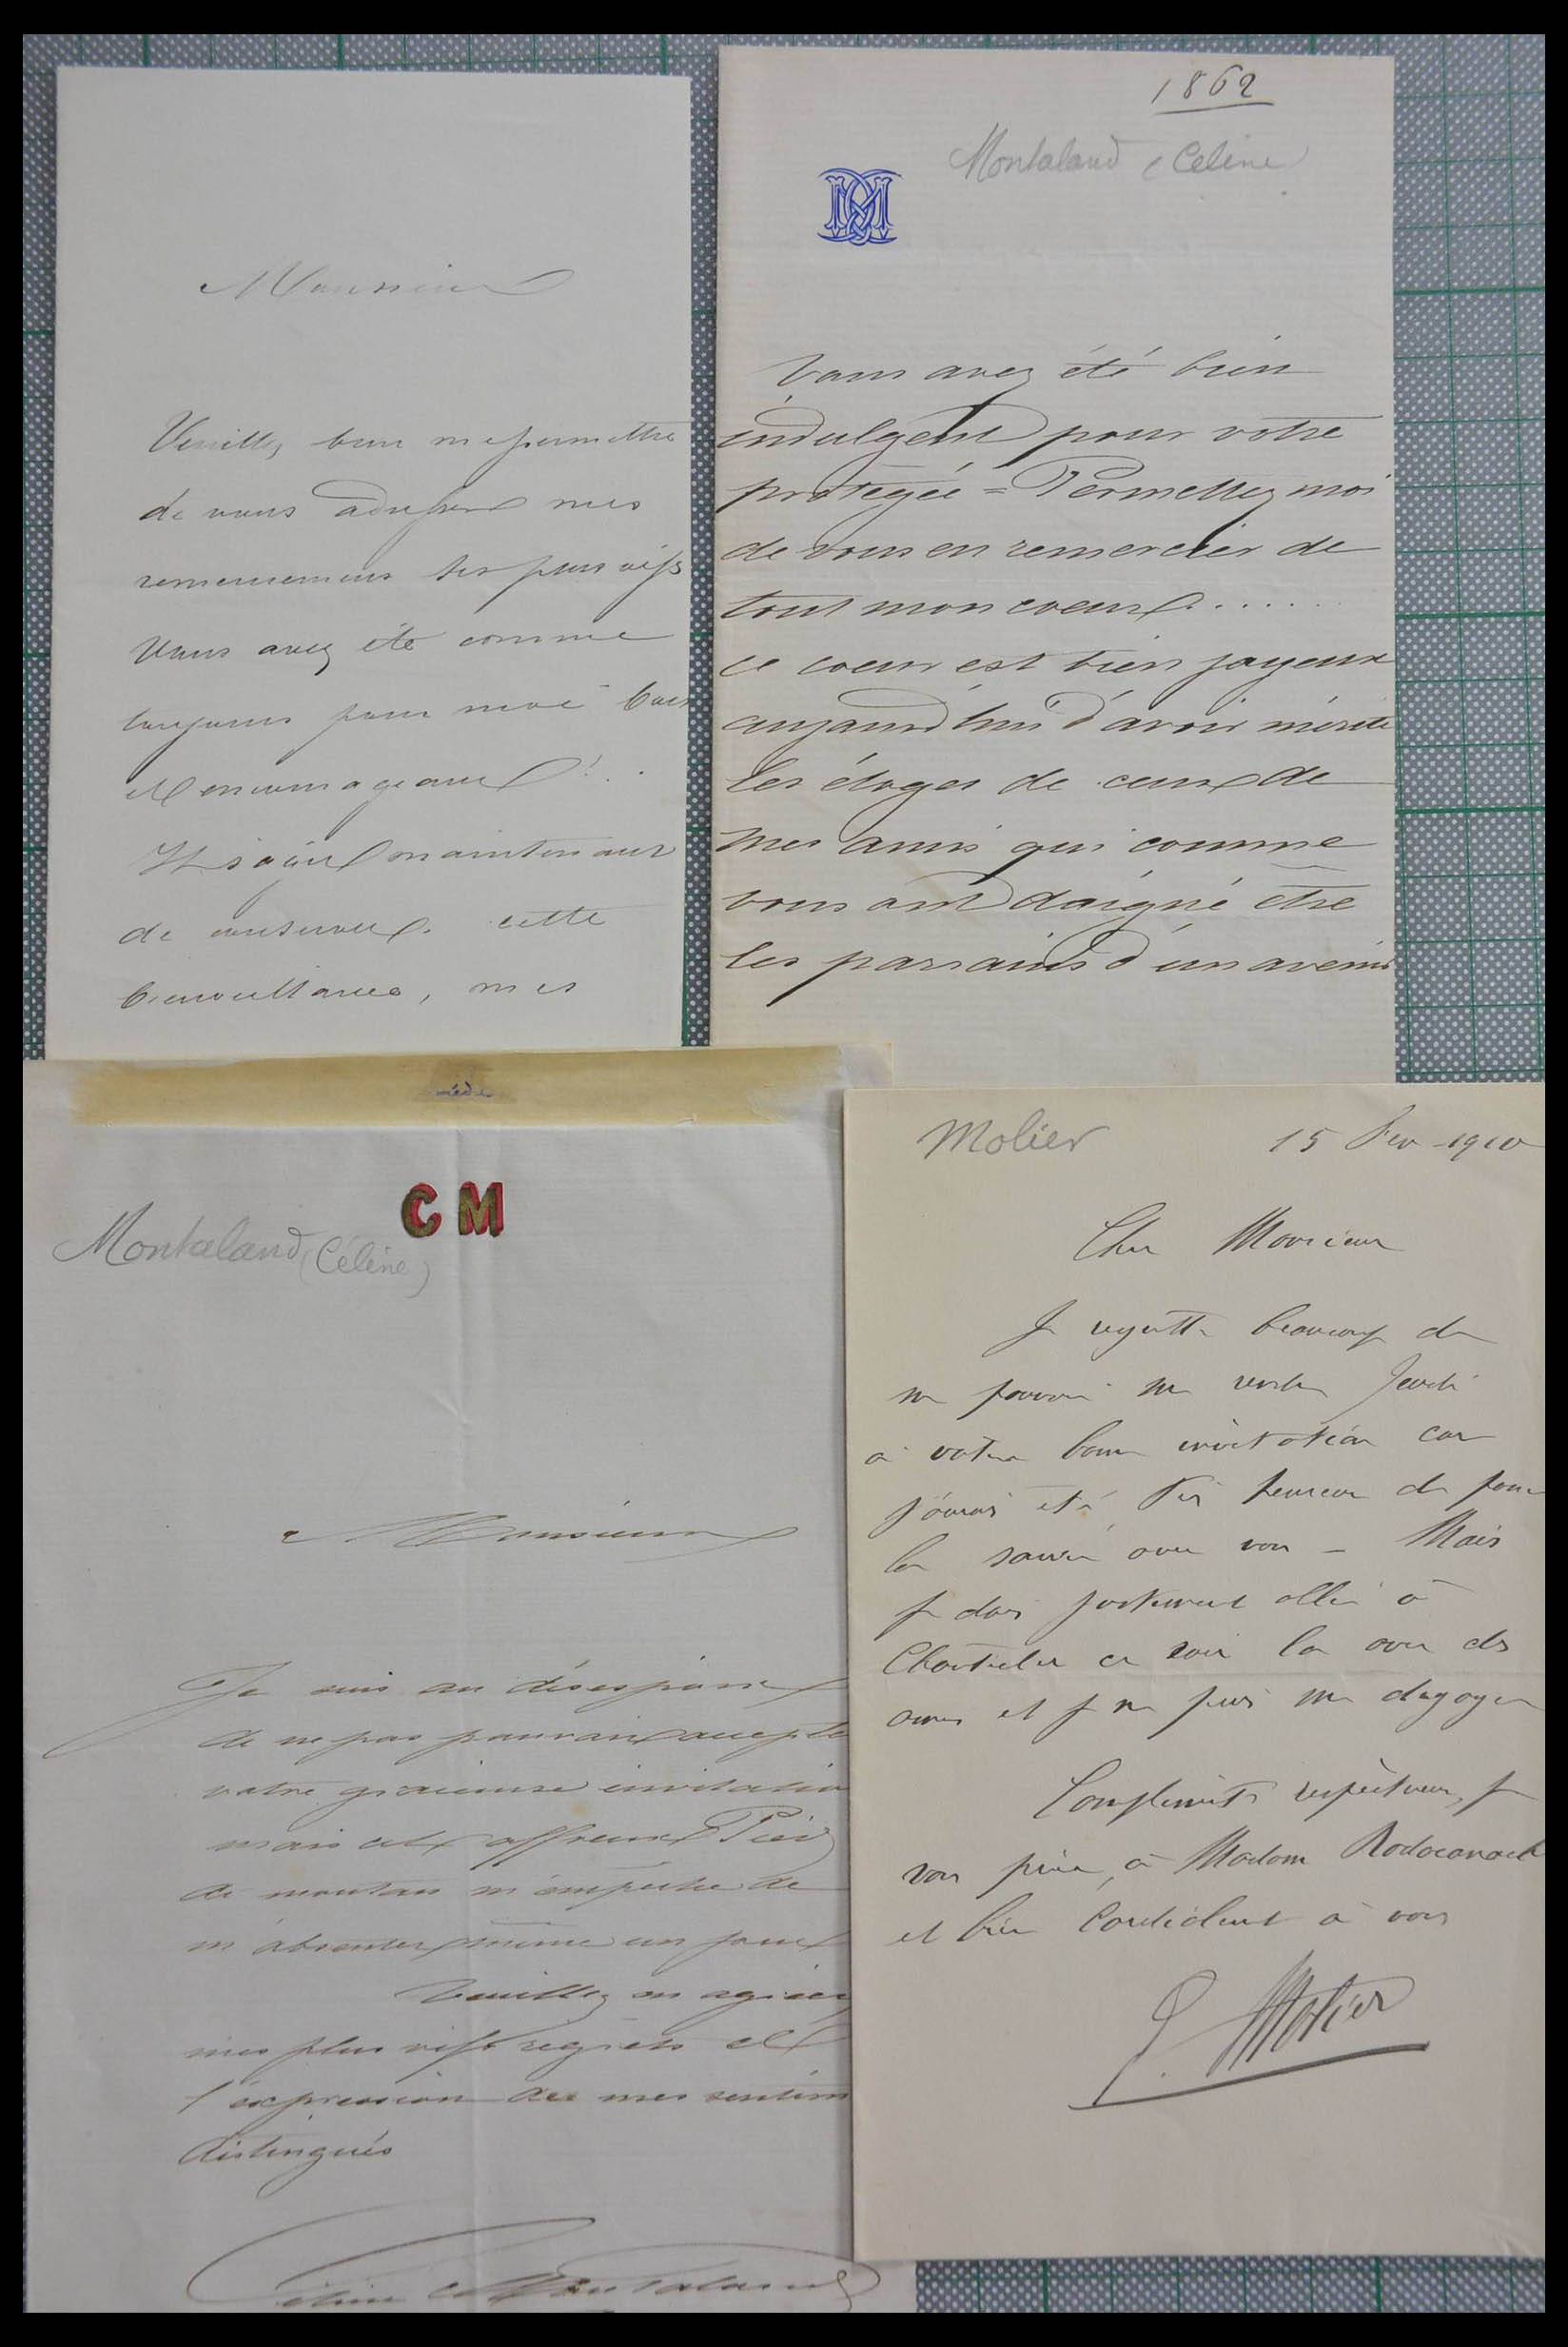 Monsieur
Veuillez bien me permettre
de vous adresser mes
remerciemens les plus vifs
Vous avez été comme
toujours pour moi bon
et encourageant !..
maintenant
de conserver cette
bienveillance, mes
1862
Montaland (Celine)
Vous avez été bien
indulgent pour votre
protégée = Permettez moi
de vous en remercier de
tout mon coeur.......
ce coeur est bien joyeux
aujourd'hui d'avoir mérité
les éloges de ceux de
mes amis qui comme
vous ont daigné être
les parrains d'un avenir
CM
Montaland (Céline)
Monsieur
Je suis au désespoir
de ne pas pouvoir accepte
votre gracieuse invitation
mais cet affreux Pied
de mouton m'empêche de
m'absenter même un jour
Veuillez en agréer
mes plus vifs regrets et
l'expression de mes sentim
distingués
Céline Montaland
Molier
15 Fev 1910
Cher Monsieur
Je regrette beaucoup de
ne pouvoir me rendre Jeudi
à votre bonne invitation car
j'aurais été très heureux de passer
la soirée avec vous - Mais
je dois justement aller à
Chantecler ce soir là avec des
amis et je ne puis me dégager
Compliments respectueux, je
vous prie, à Madame Rodocanachi
et bien cordialement à vous
E. Molier